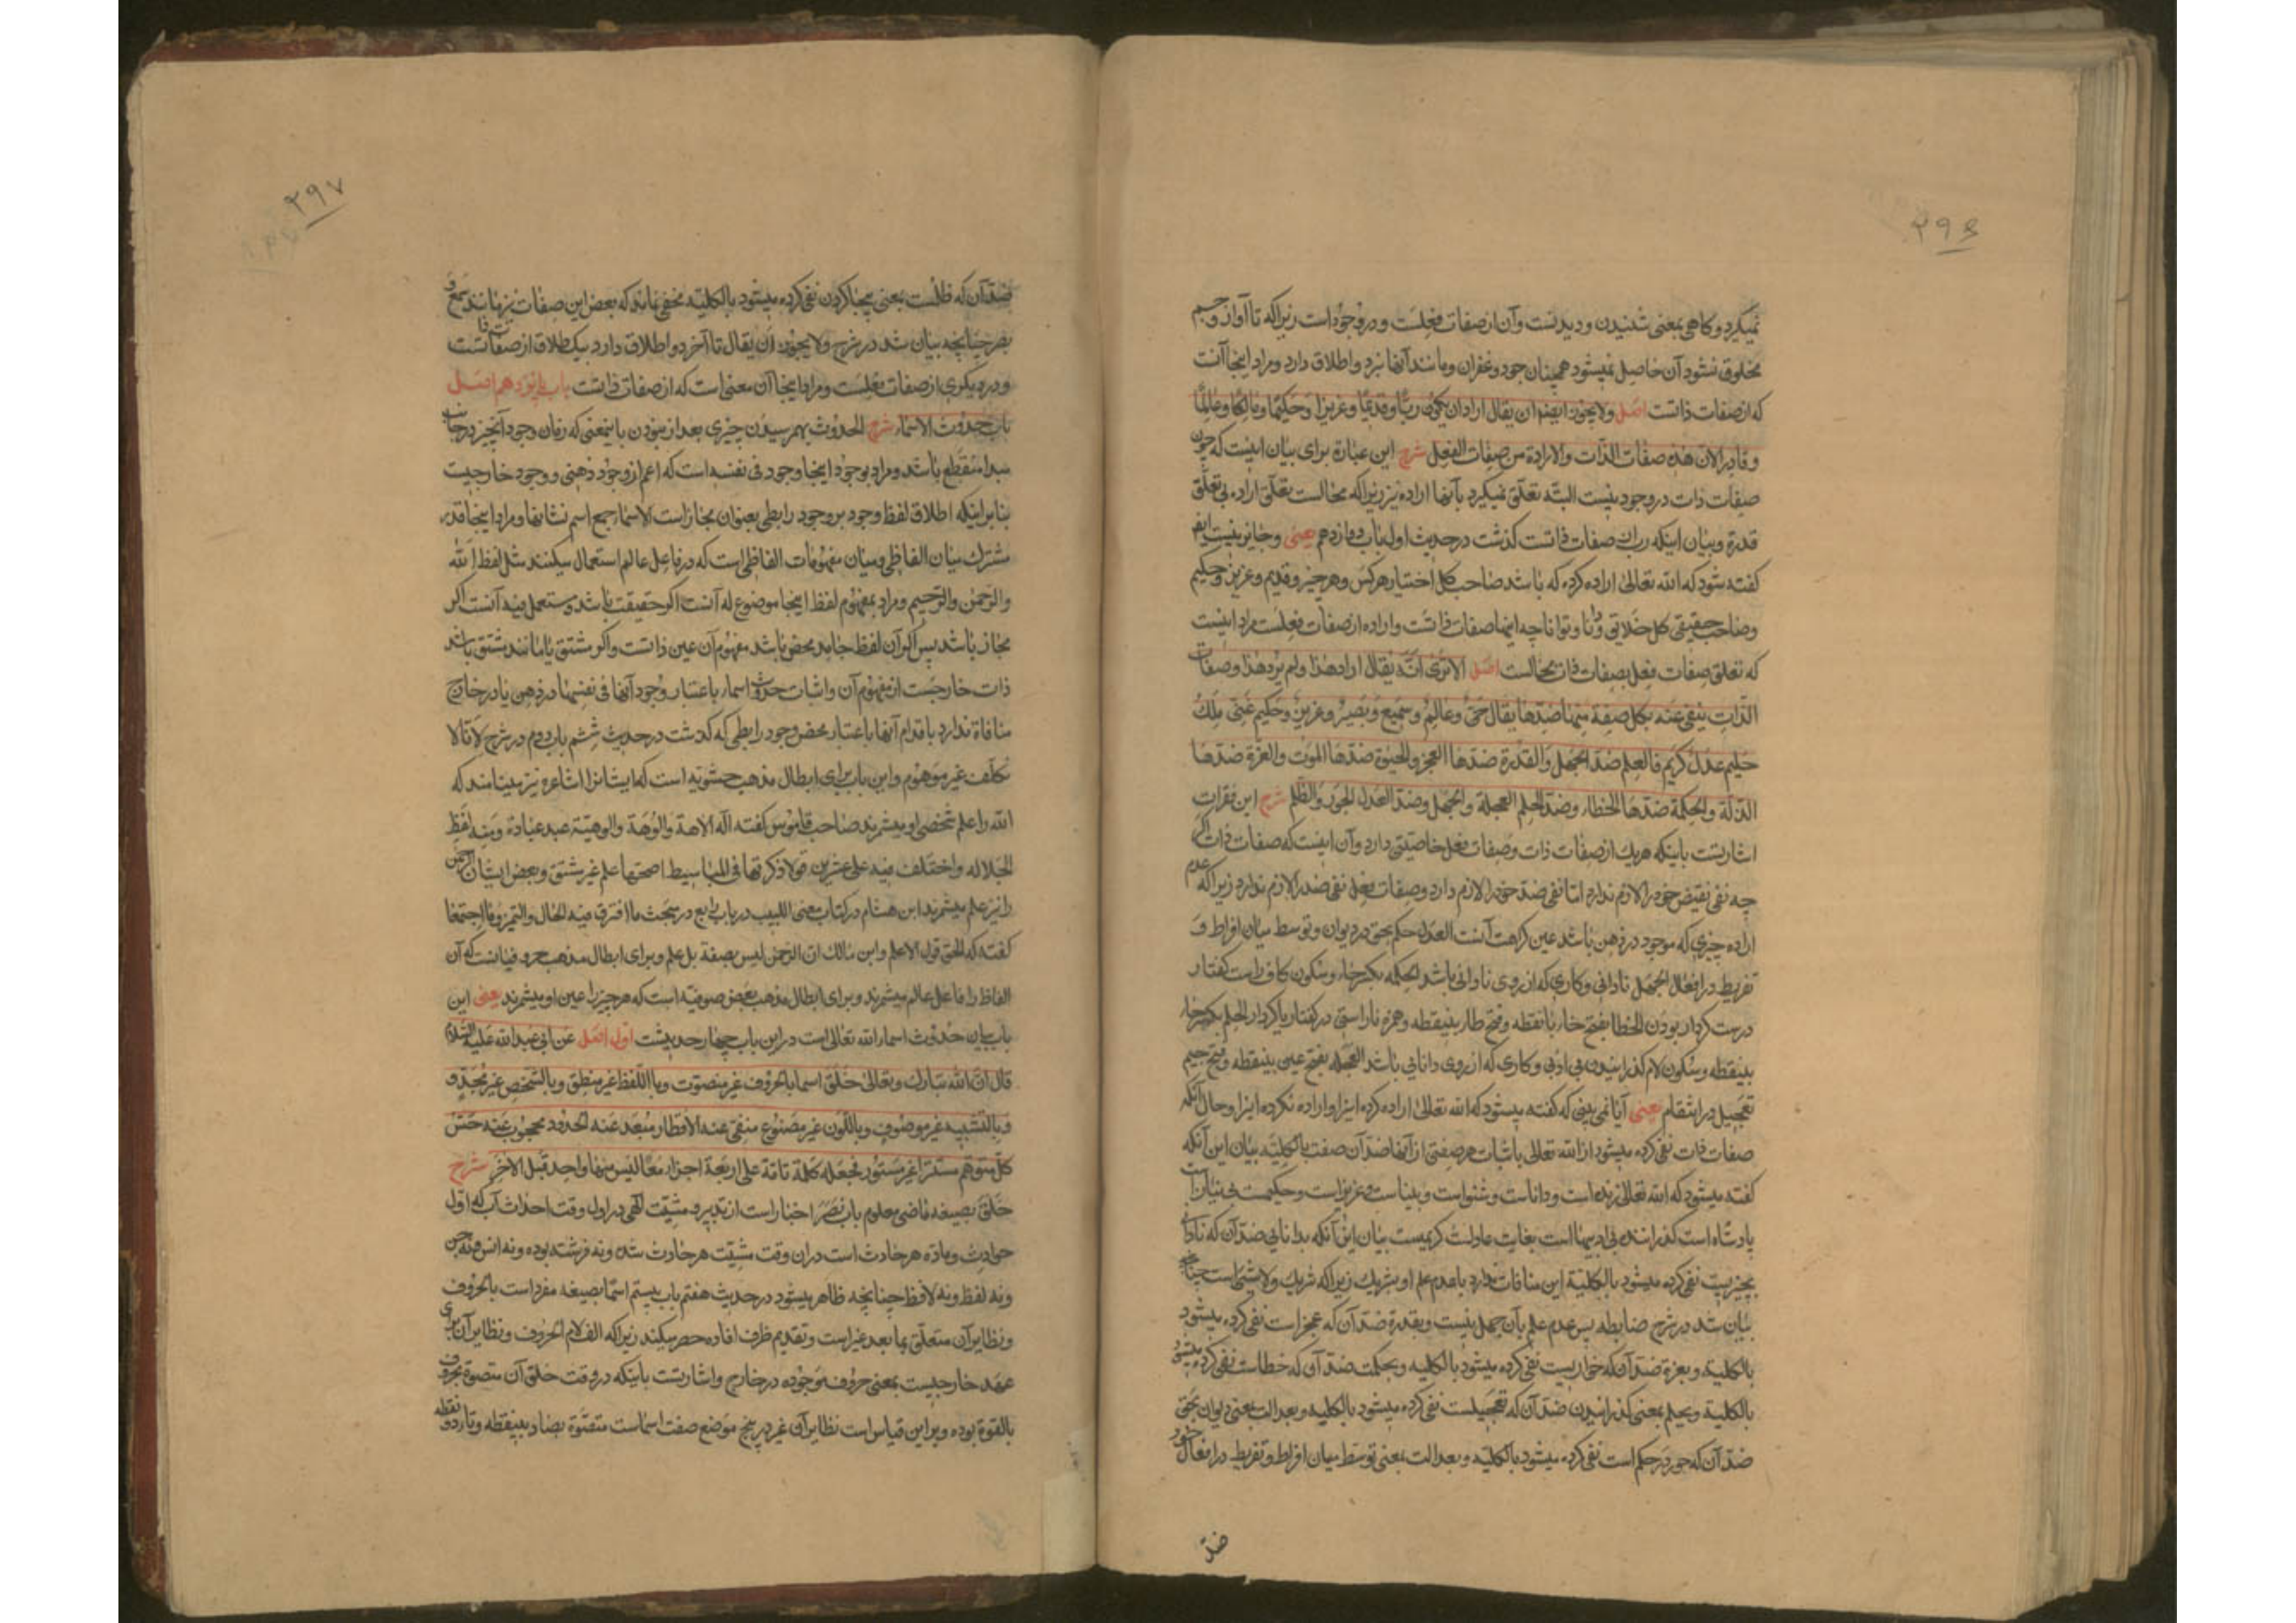 ۲۹۶
نمیگیرد و کاهی بمعنی شنیدن و دیدنست و آن از صفات فعلست و درو جود است زیرا که تا آواز و جسم
مخلوق نشود آن حاصل نمیشود همچنان جود و غفران و مانند آنها نیز دو اطلاق دارد و مراد اینجا آنست
که از صفات ذاتست اصل ولا یجوز ایضا ان یقال اراد ان یکون ربّا و قدیمًا و عزیزا و حکیمًا و مالکًا و عالمًا
و قادرا لان هذه صفات الذّات والارادة من صفات الفعل شرح این عبارة برای بیان اینست که چون
صفات ذات در وجود نیست البتّه تعلّق نمیگیرد بآنها اراده نیز زیرا که محالست تعلّق اراده بی تعلّق
قدرة و بیان اینکه رب از صفات ذاتست کذشت در حدیث اول باب دوازدهم یعنی و جایز نیست ایضا
کفته شود که الله تعالی اراده کرده که باشد صاحب کل اختیار هرکس و هر چیز و قدیم و عزیز و حکیم
و صاحب حقیقی کل خلائق و دانا و توانا چه اینها صفات ذاتست و اراده از صفات فعلست مراد اینست
که تعلق صفات فعل بصفات ذات محالست اصل الا تری انّه یقال اراد هذا ولم یرد هذا وصفات
الذّات ینفی عنه بکل صفة منها ضدّها یقال حیّ و عالم و سمیع و بصیر و عزیز و حکیم غنی ملک
حلیم عدل کریم فالعلم ضدّه الجهل والقدرة ضدّها العجز والحیوة ضدّها الموت والعزّة ضدّها
الذّلّة والحکمة ضدّها الخطاء وضدّ الحلم العجلة والجهل وضدّ العدل الجور والظّلم شرح این فقرات
اشارتست باینکه هریک از صفات ذات و صفات فعل خاصیتی دارد و آن اینست که صفات ذات اگر
چه نفی نقیض خود را لازم ندارد امّا نفی ضدّ خود را لازم دارد و صفات فعل نفی ضد را لازم ندارد زیرا که عدم
اراده چیزی که موجود در ذهن باشد عین کراهت آنست العدل حکم بحق در دیوان و توسط میان افراط و
تفریط در افعال الجهل نادانی و کاری که از روی نادانی باشد الحکمه بکسر حاء و سکون کاف راست کفتار
درست کردار بودن الخطا بفتح خاء با نقطه و فتح طاء بینقطه و همزه ناراستی در کفتار یا کردار الحلم بکسر حاء
بینقطه و سکون لام کذرانیدن بی ادبی و کاری که از روی دانایی باشد العجله بفتح عین بینقطه و فتح جیم
تعجیل در انتقام یعنی آیا نمی بینی که کفته میشود که الله تعالی اراده کرده اینرا و اراده نکرده اینرا و حال آنکه
صفات ذات نفی کرده میشود از الله تعالی باثبات هر صفتی از آنها ضدّ آن صفت بالکلیّه بیان این آنکه
کفته میشود که الله تعالی زنده است و داناست و شنواست و بیناست و عزیز است و حکیمست بی نیاز است
پادشاه است کذراننده بی ادبیهاست بغایت عادلست کریمست بیان این آنکه بدانایی ضدّ آن که نادانی
بچیزیست نفی کرده میشود بالکلیّه این منافات ندارد با عدم علم او بشریک زیرا که شریک ولا شیٔ است چنانچه
بیان شد در شرح ضابطه پس عدم علم بآن جهل نیست و بقدرة ضدّ آن که عجز است نفی کرده میشود
بالکلیّه و بعزة ضدّ آن که خواریست نفی کرده میشود بالکلیه و بحکمت ضدّ آن که خطاست نفی کرده میشود
بالکلیّه و بحلم بمعنی کذرانیدن ضدّ آن که تعجیلست نفی کرده میشود بالکلیه و بعدالت بمعنی دیوان بحقّ
ضدّ آن که جور در حکم است نفی کرده میشود بالکلیّه و بعدالت بمعنی توسّط میان افراط و تفریط در افعال خود
ضدّ
۲۹۷
ضدّ آن که ظلمست بمعنی بیجا کردن نفی کرده میشود بالکلیّه مخفی نماند که بعض این صفات نیز مانند سمع و
بصر چنانچه بیان شد در شرح ولا یجوز ان یقال تا آخر دو اطلاق دارد بیک اطلاق از صفات ذاتست
و در دیکری از صفات فعلست و مراد اینجا آن معنی است که از صفات ذاتست باب پانزدهم اصل
باب حدوث الاسماء شرح الحدوث بهم رسیدن چیزی بعد از نبودن باینمعنی که زمان وجود آنچیز در جانب
مبدا منقطع باشد و مراد بوجود اینجا وجود فی نفسه است که اعم از وجود ذهنی و وجود خارجیست
بنابر اینکه اطلاق لفظ وجود بر وجود رابطی بعنوان مجاز است الاسماء جمع اسم نشانها و مراد اینجا قدر
مشترک میان الفاظی و میان مفهومات الفاظی است که در فاعل عالم استعمال میکنند مثل لفظ الله
والرّحمن والرّحیم و مراد بمفهوم لفظ اینجا موضوع له آنست اکر حقیقت باشد و مستعمل فیه آنست اکر
مجاز باشد پس اکر آن لفظ جامد محض باشد مفهوم آن عین ذاتست و اکر مشتق یا مانند مشتق باشد
ذات خارجست از مفهوم آن و اثبات حدوث اسماء باعتبار وجود آنها فی نفسها در ذهن یا در خارج
منافاة ندارد با قدم آنها باعتبار محض وجود رابطی که کذشت در حدیث ششم باب دوم در شرح لا قالا
تکلّف غیر موهوم و این باب برای ابطال مذهب حشویه است که ایشانرا اشاعره نیز مینامند که
الله را علم شخصی او میشمرند صاحب قاموس کفته اله الاهة والوهة والوهیّة عبد عبادة ومنه لفظ
الجلاله واختلف فیه علی عشرین قولا ذکرتها فی المباسیط اصحّها علم غیر مشتق و بعض ایشان الرحمن
را نیز علم میشمرند ابن هشام در کتاب مغنی اللبیب در باب رابع در مبحث ما افترق فیه الحال والتمیز وما اجتمعا
کفته که الحق قول الاعلم وابن مالک انّ الرّحمن لیس بصفة بل علم و برای ابطال مذهب حروفیانست که آن
الفاظ را فاعل عالم میشمرند و برای ابطال مذهب بعض صوفیّه است که هر چیز را عین او میشمرند یعنی این
باب بیان حدوث اسماء الله تعالی است در این باب چهار حدیثست اوّل اصل عن ابی عبد الله علیه السّلام
قال انّ الله تبارک وتعالی خلق اسما بالحروف غیر متصوّت وباللّفظ غیر منطق وبالشّخص غیر مجسّد و
وبالتّشبیه غیر موصوف وباللّون غیر مصبوغ منفیّ عنه الاقطار مبعّد عنه الحدود محجوب عنه حسّ
کلّ متوهّم مستتر غیر مستور فجعله کلمة تامّة علی اربعة اجزاء معًا لیس منها واحد قبل الآخر شرح
خلق بصیغه ماضی معلوم باب نصر اخبار است از تدبیر و مشیّت الهی در اول وقت احداث آب که اوّل
حوادث و مادّه هر حادث است در ان وقت مشیّت هر حادث شده و نه فرشته بوده و نه انس و نه جن
و نه لفظ و نه لافظ چنانچه ظاهر میشود در حدیث هفتم باب بیستم اسمًا بصیغه مفرد است بالحروف
و نظایر آن متعلّق بما بعد غیر است و تقدیم ظرف افاده حصر میکند زیرا که الف لام الحروف و نظایر آن برای
عهد خارجیست بمعنی حروف موجوده در خارج و اشارتست باینکه در وقت خلق آن متصوّت بحروف
بالقوة بوده و بر این قیاس است نظایر آن غیر در پنج موضع صفت اسماست متصوّت بصاد بینقطه و تاء دو نقطه